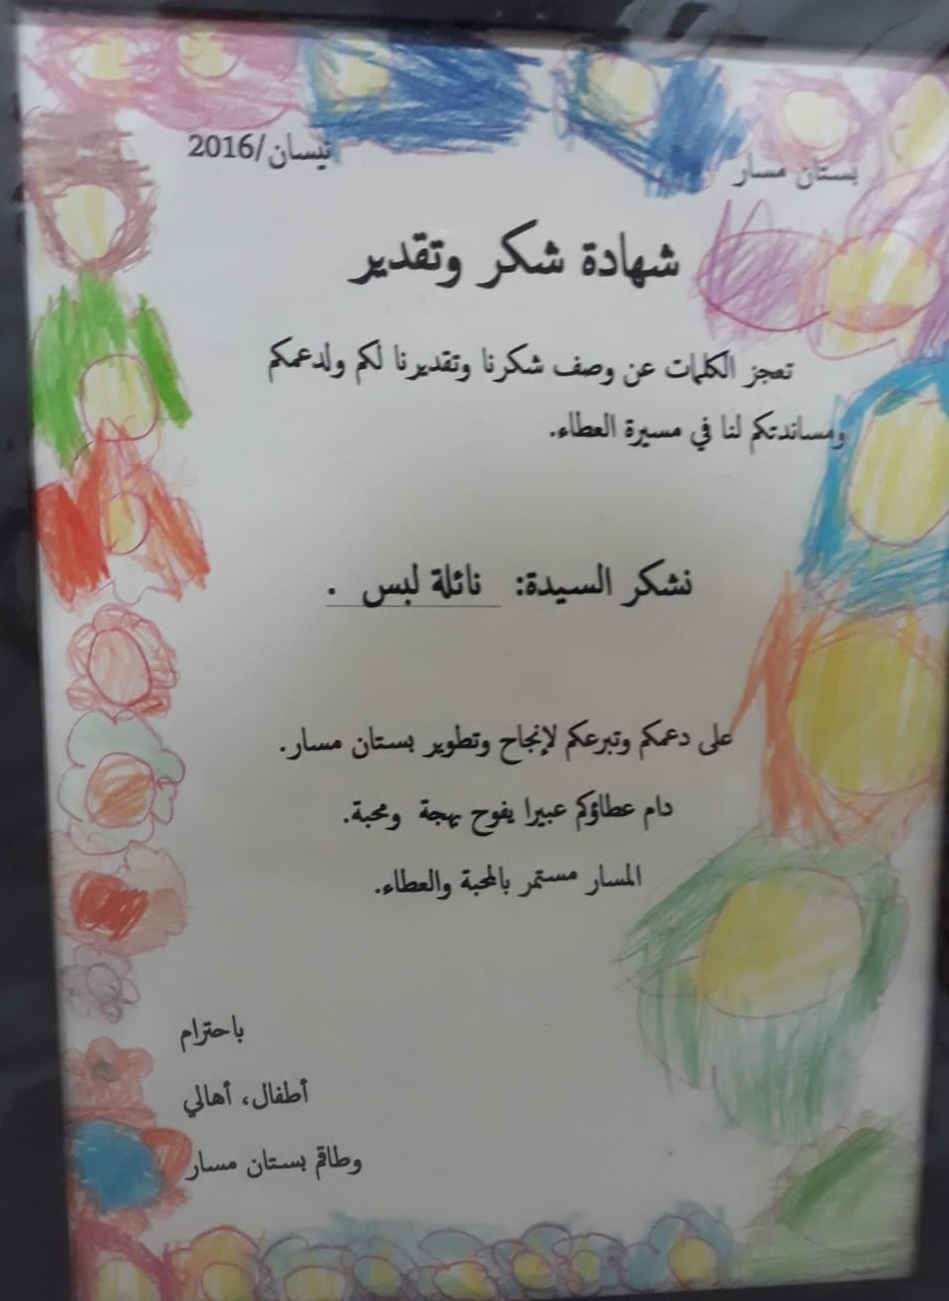 بستان مسار
نيسان/2016
شهادة شكر وتقدير
تعجز الكلمات عن وصف شكرنا وتقديرنا لكم ولدعمكم
ومساندتكم لنا في مسيرة العطاء.
نشكر السيدة: نائلة لبس .
على دعمكم وتبرعكم لإنجاح وتطوير بستان مسار.
دام عطاؤكم عبيرا يفوح بهجة ومحبة.
المسار مستمر بالمحبة والعطاء.
باحترام
أطفال، أهالي
وطاقم بستان مسار